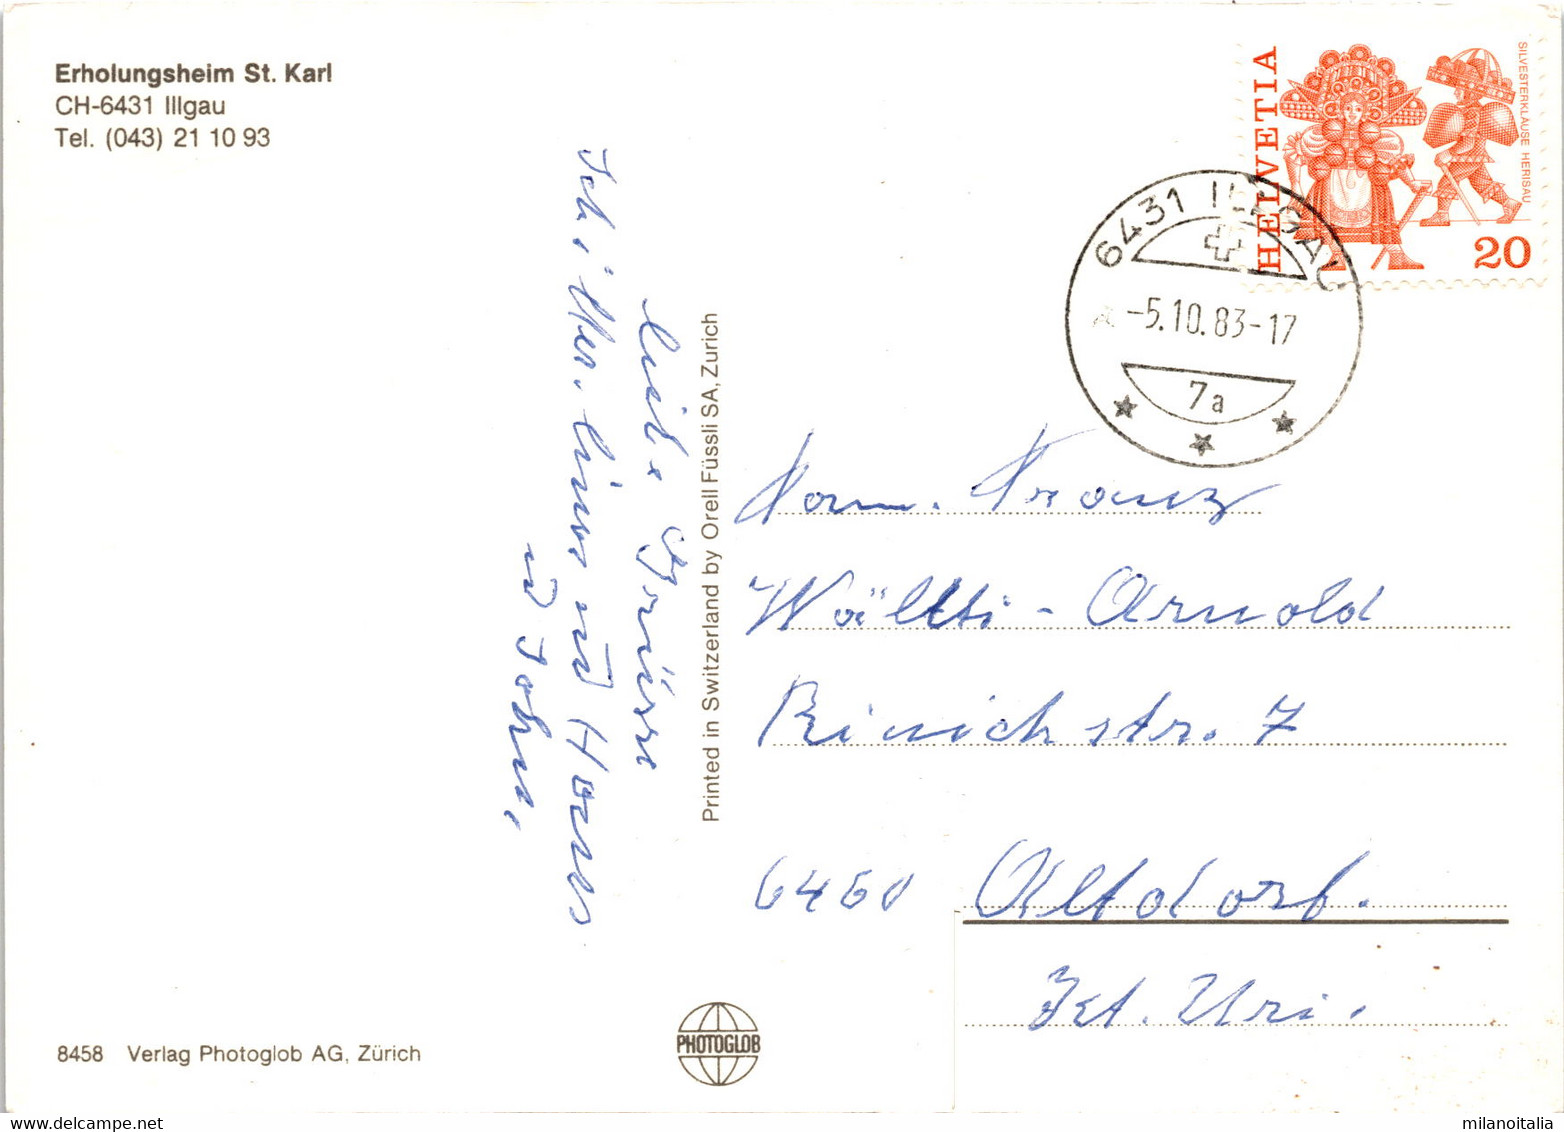 Erholungsheim St. Karl
CH-6431 Illgau
Tel. (043) 21 10 93
HELVETIA
SILVESTERKLÄUSE HERISAU
20
6431 ILLGAU
-5.10.83-17
7a
liebe Grüsse
Schiller. linus und Hans
u John.
Printed in Switzerland by Orell Füssli SA, Zurich
Fam. Franz
Wälti-Arnold
Rinichstr. 7
6460 Altdorf.
Kt. Uri.
8458 Verlag Photoglob AG, Zürich
PHOTOGLOB
milanoitalia